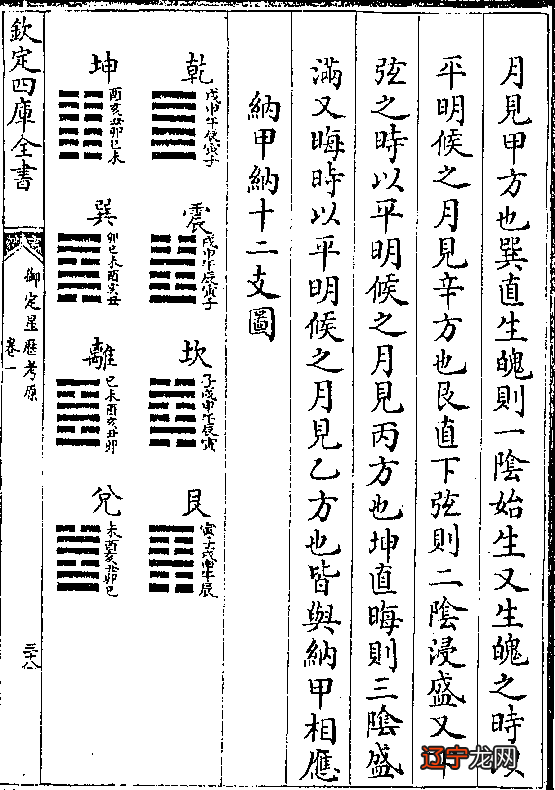 月見甲方也巽直生魄則一陰始生又生魄之時以
平明候之月見辛方也艮直下弦則二陰浸盛又下
弦之時以平明候之月見丙方也坤直晦則三陰盛
滿又晦時以平明候之月見乙方也皆與納甲相應
納甲納十二支圖
乾
戌申午辰寅子
震
戌申午辰寅子
坎
子戌申午辰寅
艮
寅子戌申午辰
坤
酉亥丑卯巳未
巽
卯巳未酉亥丑
離
巳未酉亥丑卯
兌
未酉亥丑卯巳
欽定四庫全書
御定星歷考原
卷一
三十八
辽宁龙网